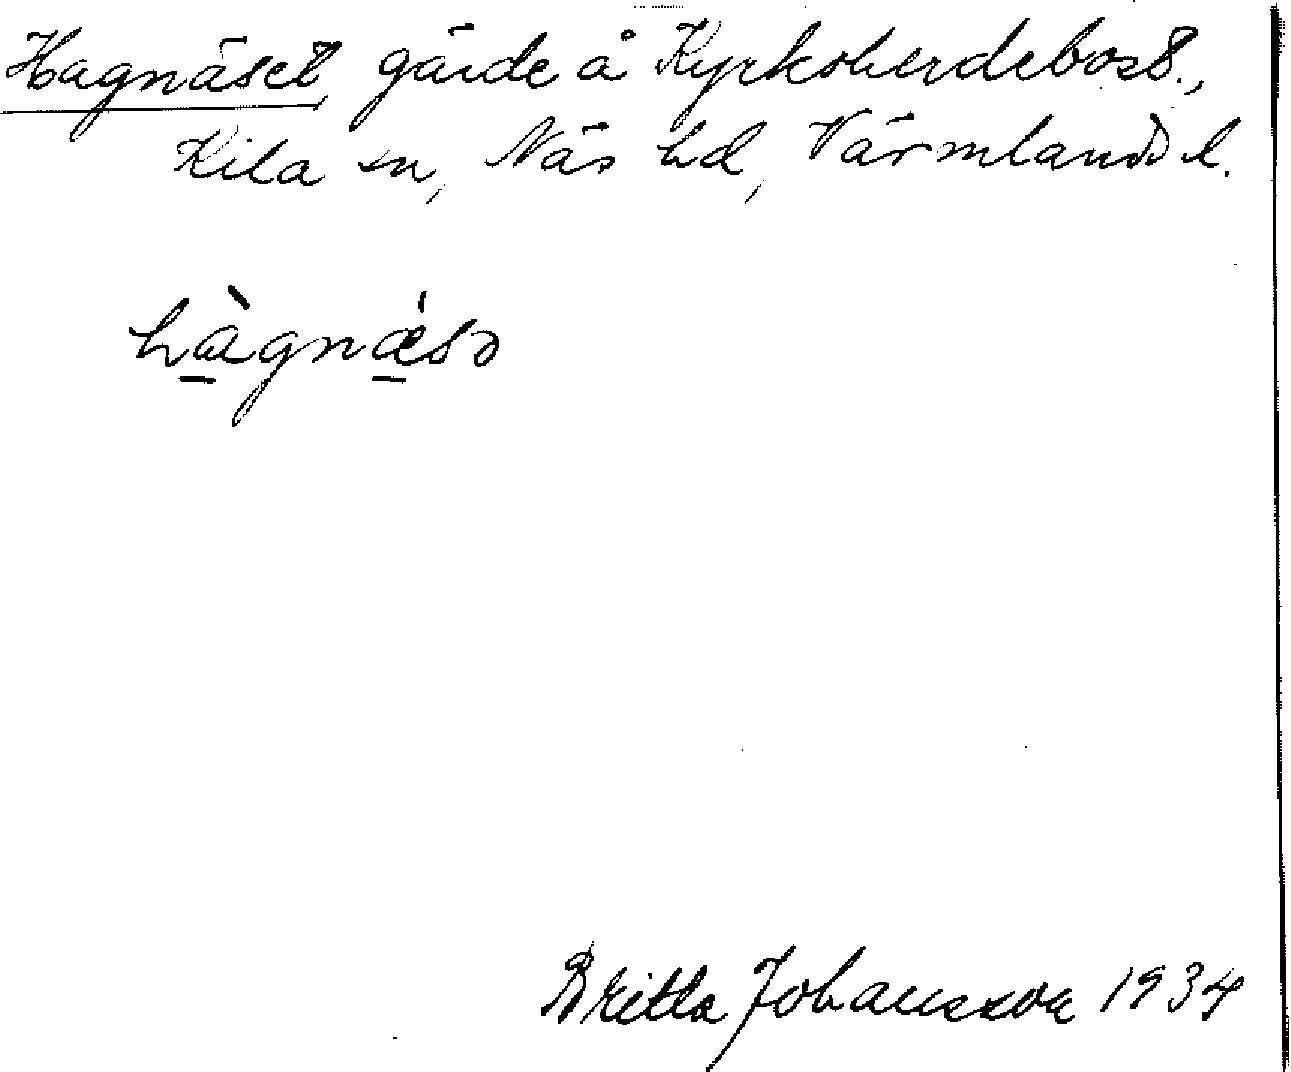 Hagnäset gärde å Kyrkoherdebost.,
Kila sn, Näs hd, Värmlands l.
hàgnǽsə
Britta Johansson 1934